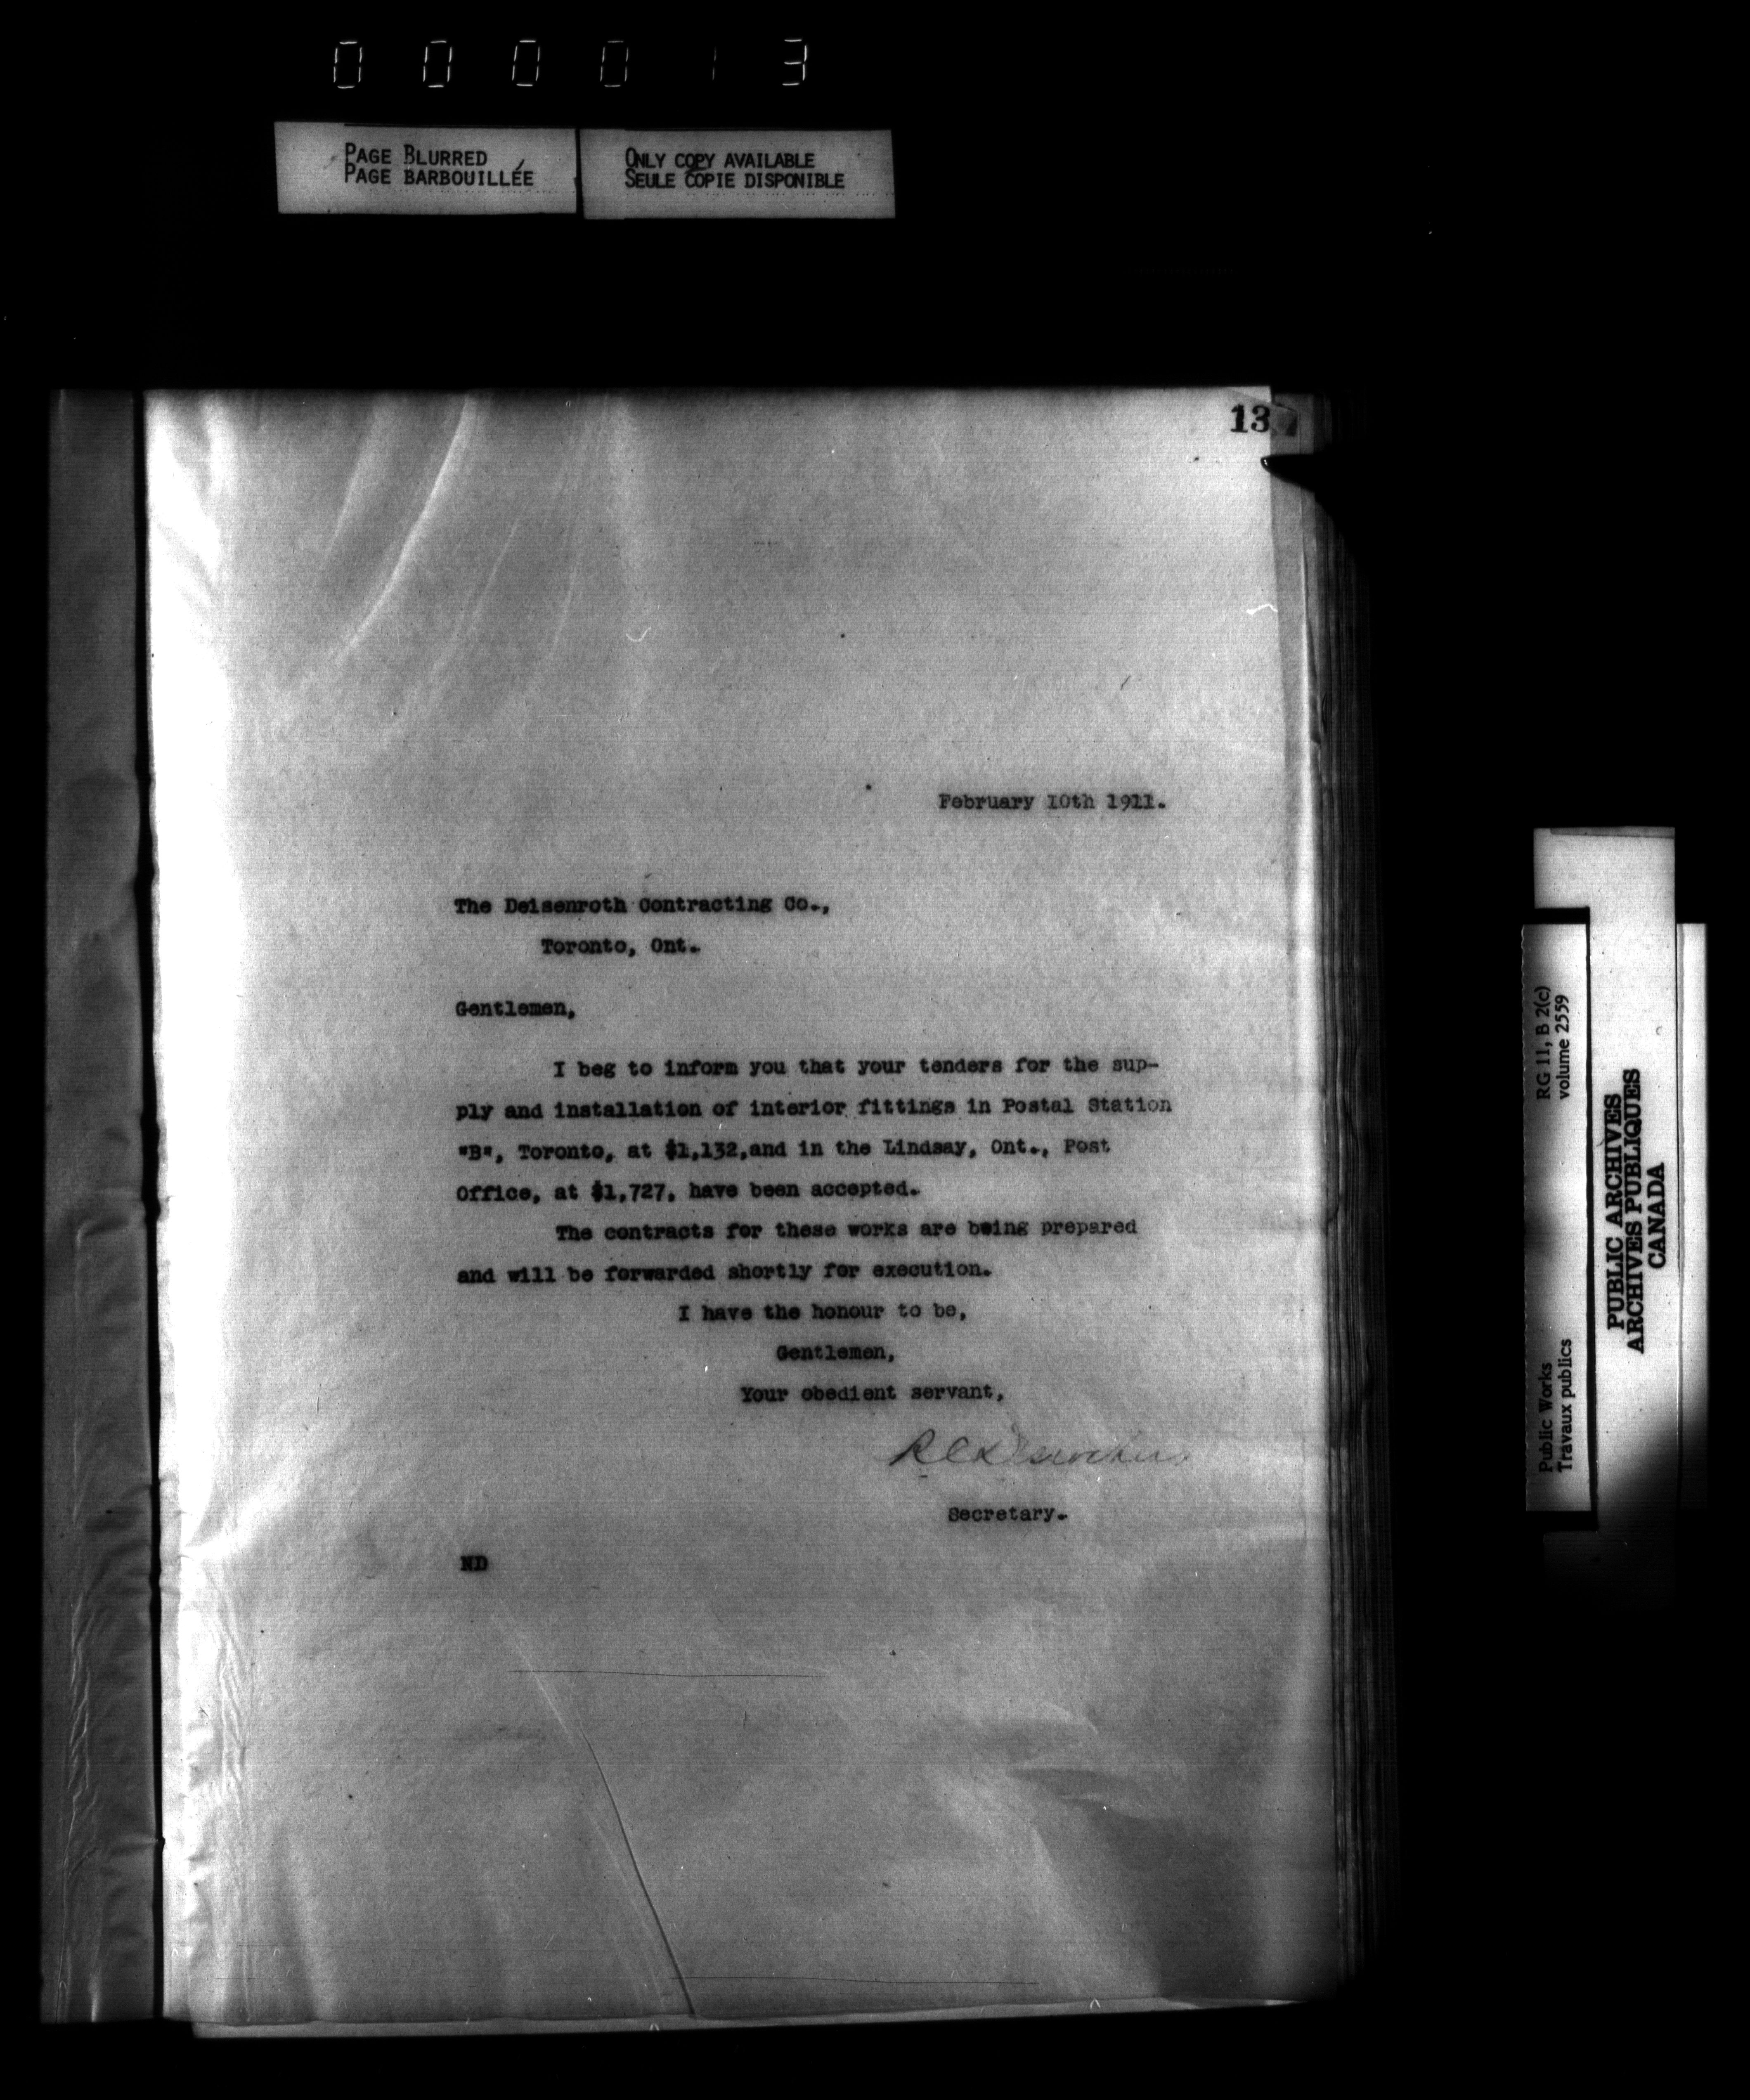 000013
PAGE BLURRED
PAGE BARBOUILLÉE
ONLY COPY AVAILABLE
SEULE COPIE DISPONIBLE
13
February 10th 1911.
The Deisenroth Contracting Co.,
Toronto, Ont.
Gentlemen,
I beg to inform you that your tenders for the sup-
ply and installation of interior fittings in Postal Station
"B", Toronto, at $1,132,and in the Lindsay, Ont., Post
Office, at $1,727, have been accepted.
The contracts for these works are being prepared
and will be forwarded shortly for execution.
I have the honour to be,
Gentlemen,
Your obedient servant,
RCDesrochers
Secretary.
ND
Public Works
Travaux publics
RG 11, B 2(c)
volume 2559
PUBLIC ARCHIVES
ARCHIVES PUBLIQUES
CANADA